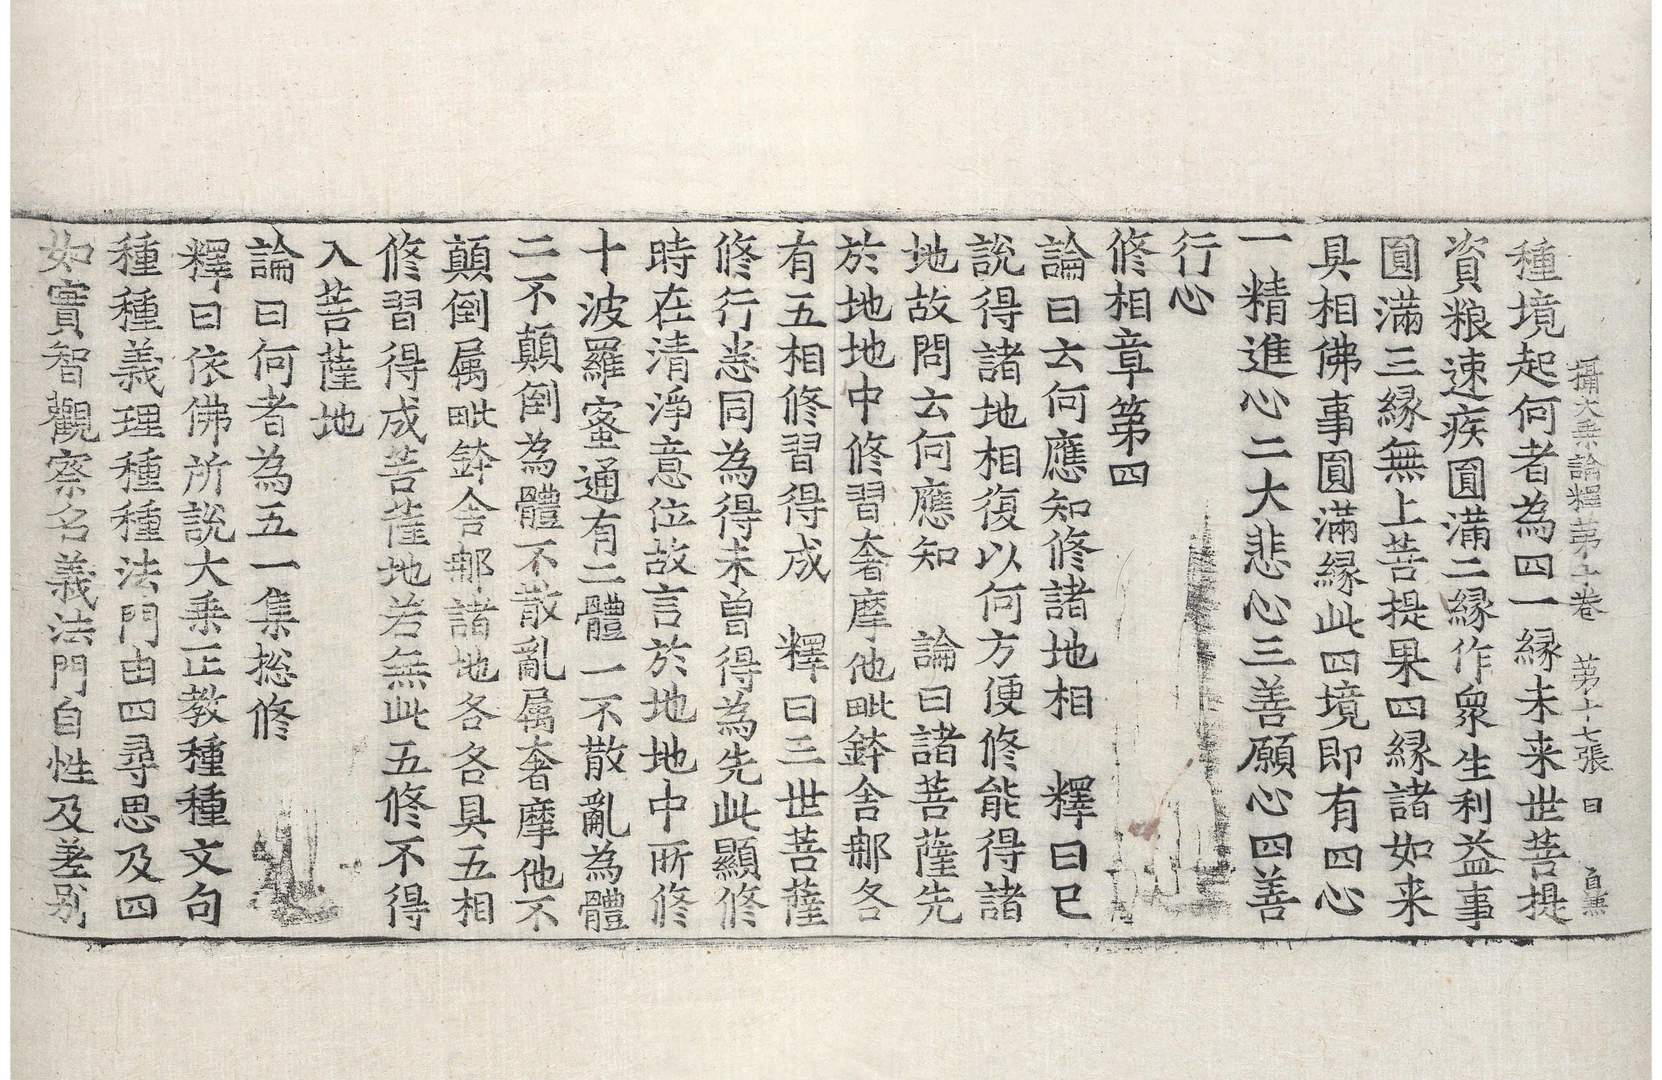 攝大乗論釋第十卷 第十七張 曰
種境起何者為四一縁未来世菩提
資粮速疾圓滿二縁作衆生利益事
圓滿三縁無上菩提果四縁諸如来
具相佛事圓滿縁此四境即有四心
一精進心二大悲心三善願心四善
行心
修相章第四
論曰云何應知修諸地相 釋曰已
說得諸地相復以何方便修能得諸
地故問云何應知 論曰諸菩薩先
於地地中修習奢摩他毗鉢舍那各
有五相修習得成 釋曰三世菩薩
修行悉同為得未曾得為先此顯修
時在清淨意位故言於地地中所修
十波羅蜜通有二體一不散亂為體
二不顛倒為體不散亂属奢摩他不
顛倒属毗鉢舍那諸地各各具五相
修習得成菩薩地若無此五修不得
入菩薩地
論曰何者為五一集捴修
釋曰依佛所說大乗正教種種文句
種種義理種種法門由四尋思及四
如實智觀察名義法門自性及差别